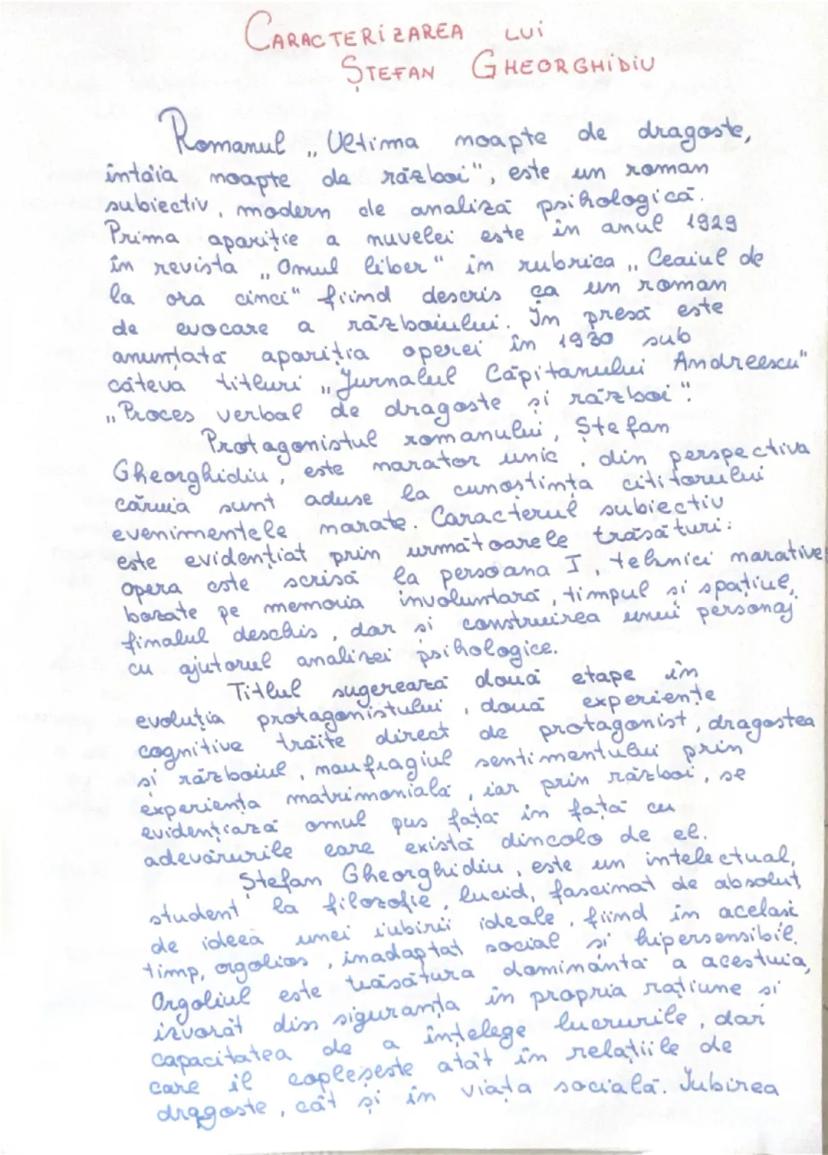 CARACTERIZAREA LUI
ȘTEFAN GHEORGHIDIU
Romanul „Ultima noapte de dragoste,
întâia noapte de război", este un roman
subiectiv, modern de analiză psihologică.
Prima apariție a nuvelei este în anul 1929
în revista „Omul liber" în rubrica „Ceaiul de
la ora cinci" fiind descris ca un roman
de evocare a războiului. În presă este
anunțată apariția operei în 1930 sub
câteva titluri „Jurnalul Căpitanului Andreescu"
„Proces verbal de dragoste și război".
Protagonistul romanului, Ștefan
Gheorghidiu, este narator unic, din perspectiva
căruia sunt aduse la cunoștința cititorului
evenimentele narate. Caracterul subiectiv
este evidențiat prin următoarele trăsături:
opera este scrisă la persoana I, tehnici narative
bazate pe memoria involuntară, timpul si spațiul,
finalul deschis, dar si construirea unui personaj
cu ajutorul analizei psihologice.
Titlul sugerează două etape în
evoluția protagonistului, două experiențe
cognitive trăite direct de protagonist, dragostea
si războiul, naufragiul sentimentului prin
experiența matrimonială, iar prin război, se
evidențiază omul pus față în față cu
adevărurile care există dincolo de el.
Ștefan Gheorghidiu, este un intelectual,
student la filozofie, lucid, fascinat de absolut,
de ideea unei iubirii ideale, fiind în acelasi
timp, orgolios, inadaptat social si hipersensibil.
Orgoliul este trăsătura dominantă a acestuia,
izvorât din siguranța în propria rațiune si
capacitatea de a înțelege lucrurile, dar
care îl copleșeste atât în relațiile de
dragoste, cât și în viața socială. Iubirea